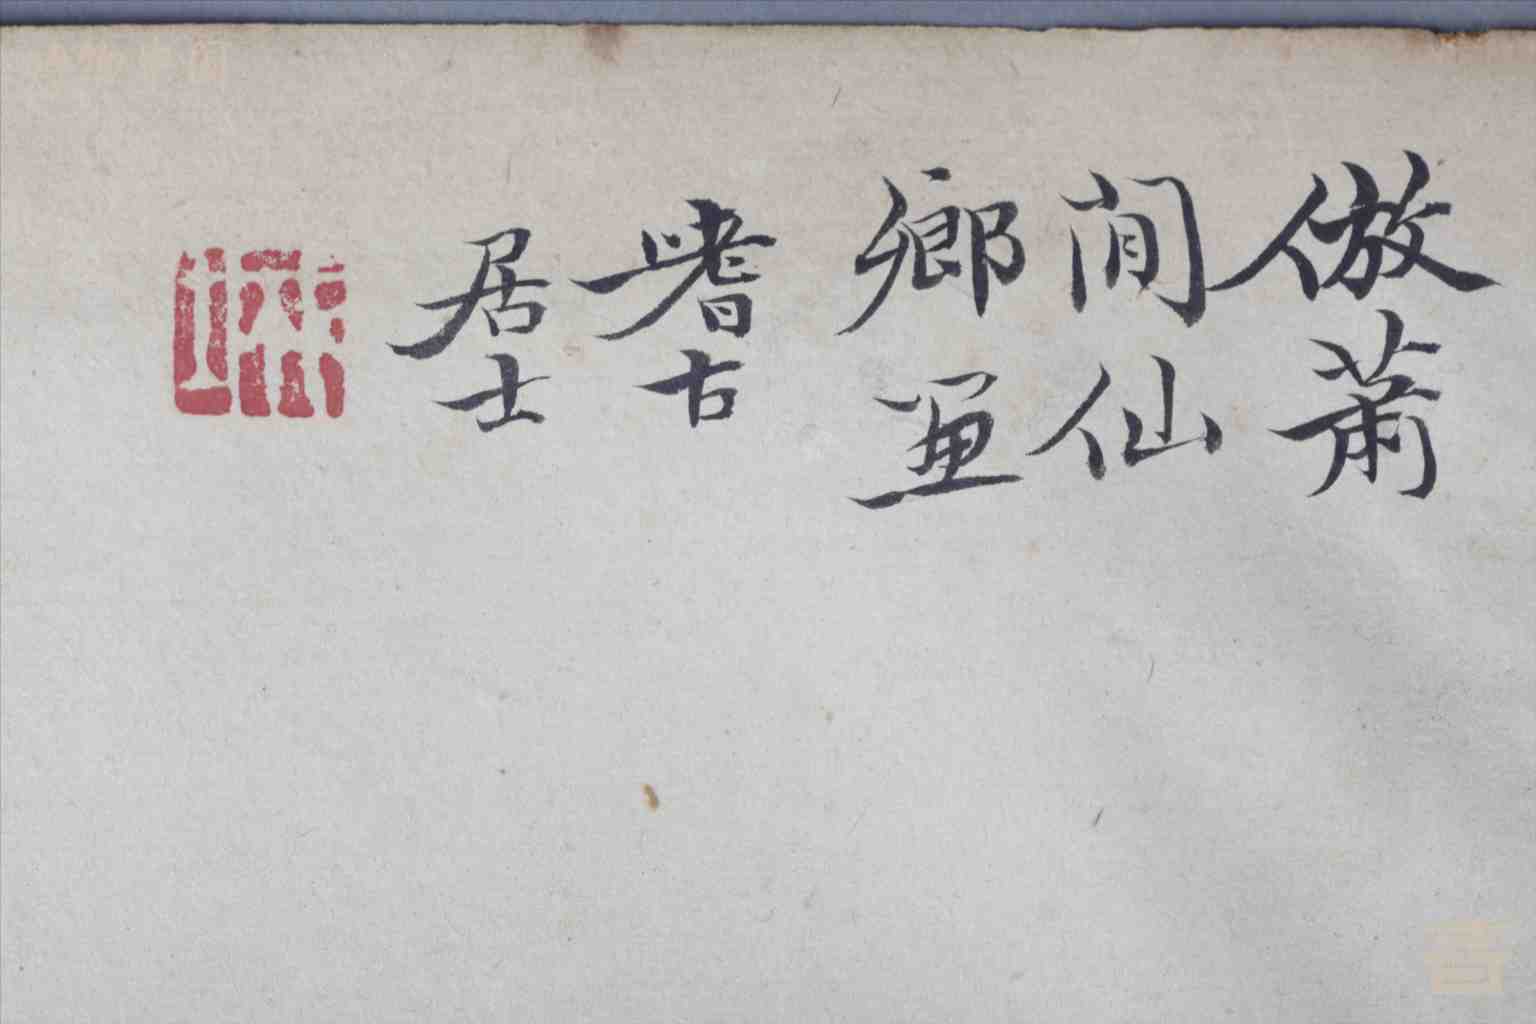 倣蕭
閒仙
鄉畫
嗜古
居士